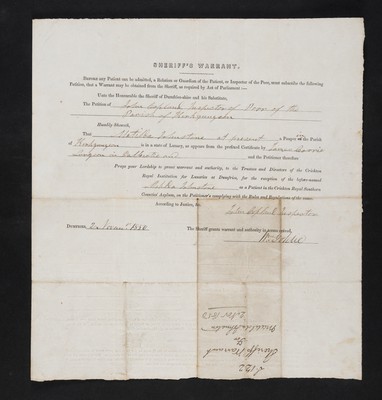 SHERIFF'S WARRANT.
BEFORE any Patient can be admitted, a Relation or Guardian of the Patient, or Inspector of the Poor, must subscribe the following
Petition, that a Warrant may be obtained from the Sheriff, as required by Act of Parliament :—
Unto the Honourable the Sheriff of Dumfries-shire and his Substitutes,
The Petition of John Inspector of Poor of the
Parish of
Humbly Sheweth,
That Matilda Johnstone at present a Pauper in the Parish
of is in a state of Lunacy, as appears from the prefixed Certificate by James
Surgeon in and the Petitioner therefore
Prays your Lordship to grant warrant and authority, to the Trustees and Directors of the Crichton
Royal Institution for Lunatics at Dumfries, for the reception of the before-named
Matilda Johnstone as a Patient in the Crichton Royal Southern
Counties' Asylum, on the Petitioner's complying with the Rules and Regulations of the same.
According to Justice, &c.
John Inspector
DUMFRIES, 1850 The Sheriff grants warrant and authority as above craved,
Sheriff's Warrant
for
Matilda Johnstone